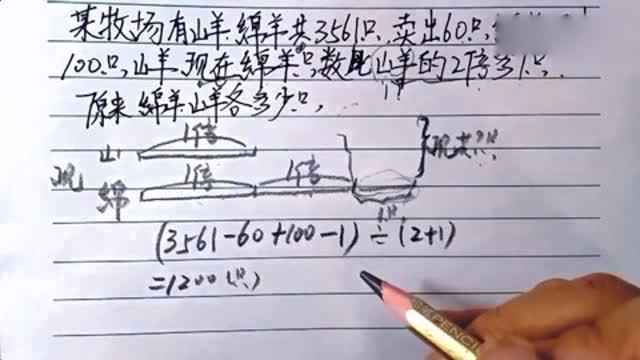 某牧场有山羊绵羊共3561只,卖出60只,
100只,山羊.现在绵羊只数比山羊的2倍多1只,
原来绵羊山羊各多少只,
1倍
山
现
1倍 1倍
绵
1只
(3561-60+100-1)÷(2+1)
=1200(只)
DEPENC